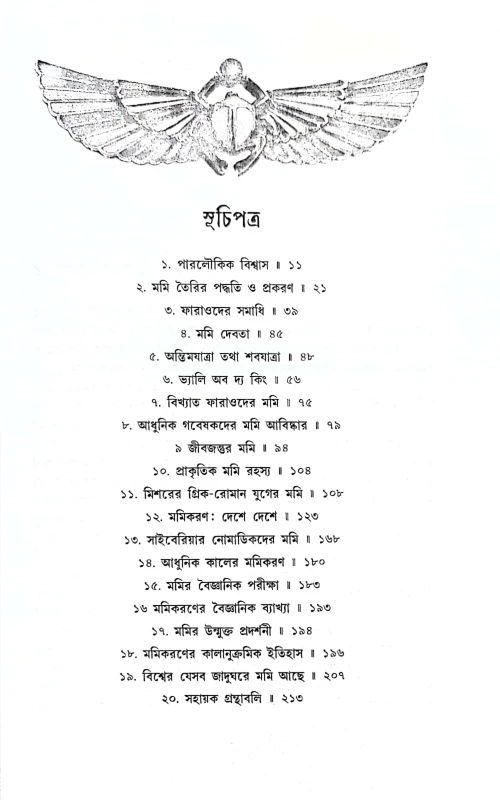 সূচিপত্র
১. পারলৌকিক বিশ্বাস ॥ ১১
২. মমি তৈরির পদ্ধতি ও প্রকরণ ॥ ২১
৩. ফারাওদের সমাধি ॥ ৩৯
৪. মমি দেবতা ॥ ৪৫
৫. অন্তিমযাত্রা তথা শবযাত্রা ॥ ৪৮
৬. ভ্যালি অব দ্য কিং ॥ ৫৬
৭. বিখ্যাত ফারাওদের মমি ॥ ৭৫
৮. আধুনিক গবেষকদের মমি আবিষ্কার ॥ ৭৯
৯ জীবজন্তুর মমি ॥ ৯৪
১০. প্রাকৃতিক মমি রহস্য ॥ ১০৪
১১. মিশরের গ্রিক-রোমান যুগের মমি ॥ ১০৮
১২. মমিকরণ: দেশে দেশে ॥ ১২৩
১৩. সাইবেরিয়ার নোমাডিকদের মমি ॥ ১৬৮
১৪. আধুনিক কালের মমিকরণ ॥ ১৮০
১৫. মমির বৈজ্ঞানিক পরীক্ষা ॥ ১৮৩
১৬ মমিকরণের বৈজ্ঞানিক ব্যাখ্যা ॥ ১৯৩
১৭. মমির উন্মুক্ত প্রদর্শনী ॥ ১৯৪
১৮. মমিকরণের কালানুক্রমিক ইতিহাস ॥ ১৯৬
১৯. বিশ্বের যেসব জাদুঘরে মমি আছে ॥ ২০৭
২০. সহায়ক গ্রন্থাবলি ॥ ২১৩